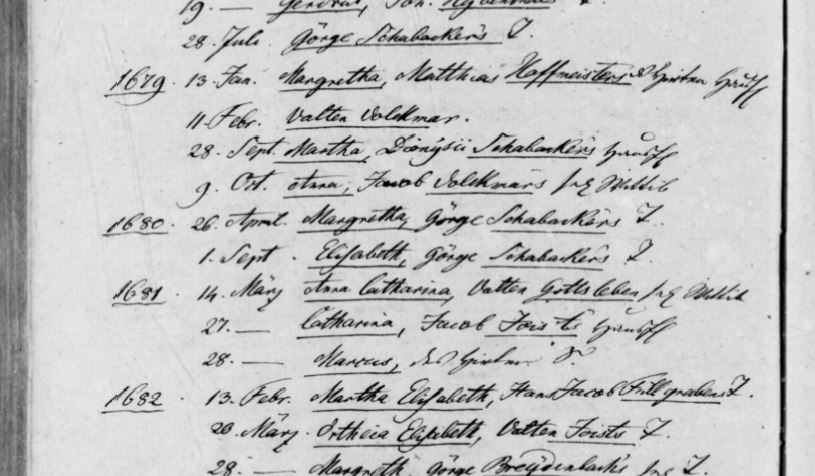 19. — Gerdrut, Joh.
28. Juli. Görge Schabackers T.
1679. 13. Jan. Margretha, Matthias Hoffmeisters Haußf
11. Febr. Valten Volckmar.
28. Sept. Martha, Dionysii Schabackers Haußf
9. Oct. Anna, Jacob Volckmars Wittib
1680. 26. April. Margretha, Görge Schabackers T.
1. Sept. Elisabeth, Görge Schabackers T.
1681. 14. März Anna Catharina, Valten Gottsleben Wittib
27. — Catharina, Jacob Joists Haußf
28. — Marcus, des
1682. 13. Febr. Martha Elisabeth, Hans Jacob Füllgrabens T.
20. März. Ortheia Elisabeth, Valten Joists T.
28. — Margreth. Görge Breydenbachs T.